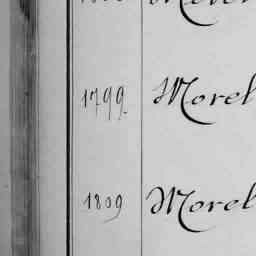 1799. Morel
1809 Morel